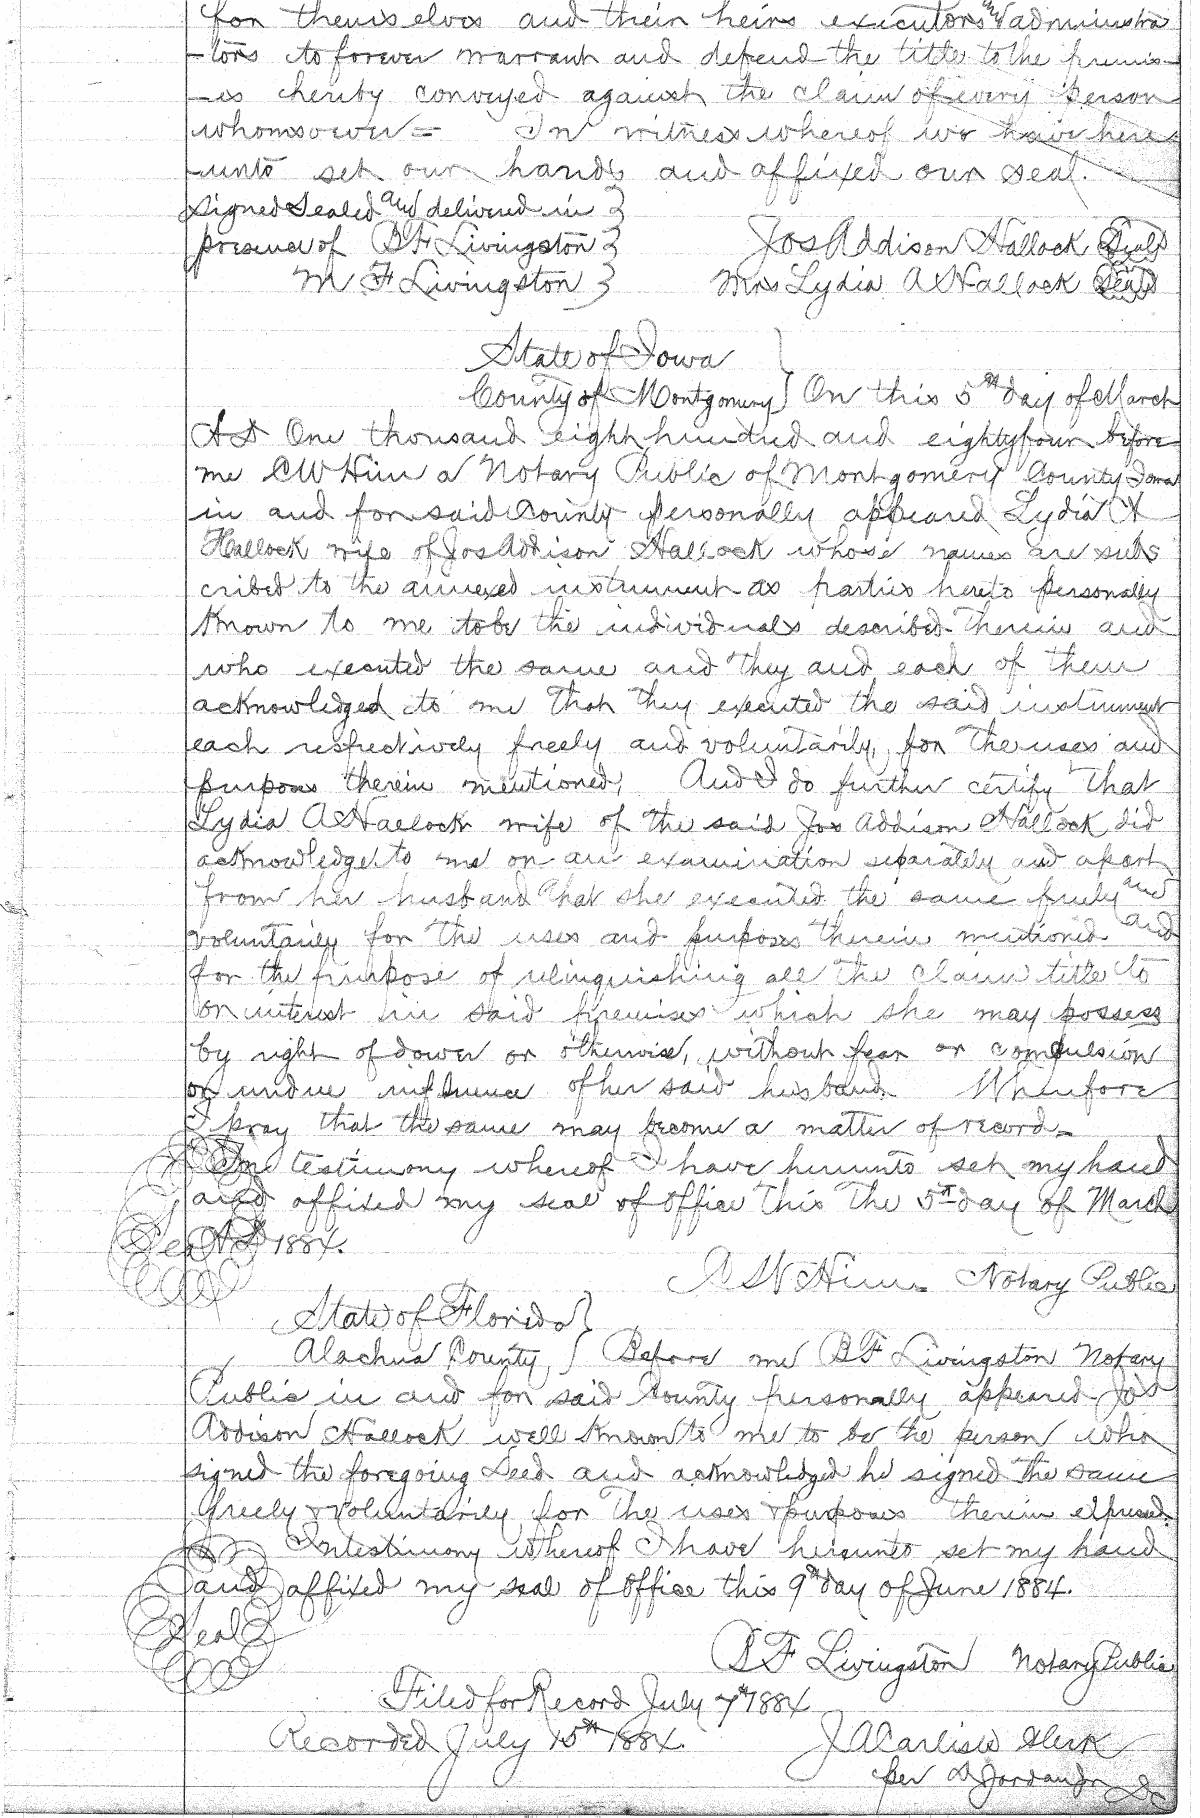 for themselves and their heirs executors and administra
-tors to forever warrant and defend the title to the premis-
-es hereby conveyed against the claim of every person
whomsoever = In witness whereof we have here
-unto set our hands and affixed our seal.
Signed Sealed and delivered in }
presence of B F Livingston } Jos Addison Hallock Seal
M F Livingston } Mrs Lydia A Hallock Seal
State of Iowa }
County of Montgomery } On this 5th day of March
A D One thousand eight hundred and eightyfour before
me C W Hiw a Notary Public of Montgomery County Iowa
in and for said County personally appeared Lydia A
Hallock wife of Jos Addison Hallock whose names are subs
cribed to the annexed instrument as parties hereto personally
Known to me to be the individuals described therein and
who executed the same and they and each of them
acknowledged to me that they executed the said instrument
each respectively freely and voluntarily, for the uses and
purposes therein mentioned, And I do further certify that
Lydia A Hallock wife of the said Jos Addison Hallock did
acknowledge to me on an examination separately and apart
from her husband that she executed the same freely and
voluntarily for the uses and purposes therein mentioned and
for the purpose of relinquishing all the claim title to
or interest in said premises which she may possess
by right of dower or otherwise, without fear or compulsion
or undue influence of her said husband. Wherefore
I pray that the same may become a matter of record =
In testimony whereof I have hereunto set my hand
and affixed my seal of office this the 5th day of March
Seal A D 1884.
Notary Public
State of Florida }
Alachua County, } Before me B F Livingston Notary
Public in and for said County personally appeared Jos
Addison Hallock well Known to me to be the person who
signed the foregoing Deed and acknowledged he signed the same
freely & voluntarily for the uses & purposes therein expressed.
In testimony whereof I have hereunto set my hand
and affixed my seal of office this 9th day of June 1884.
Seal
B F Livingston Notary Public
Filed for Record July 7th 1884
Recorded July 15th 1884. J A Carlisle Clerk
per D Jordan Jr D C